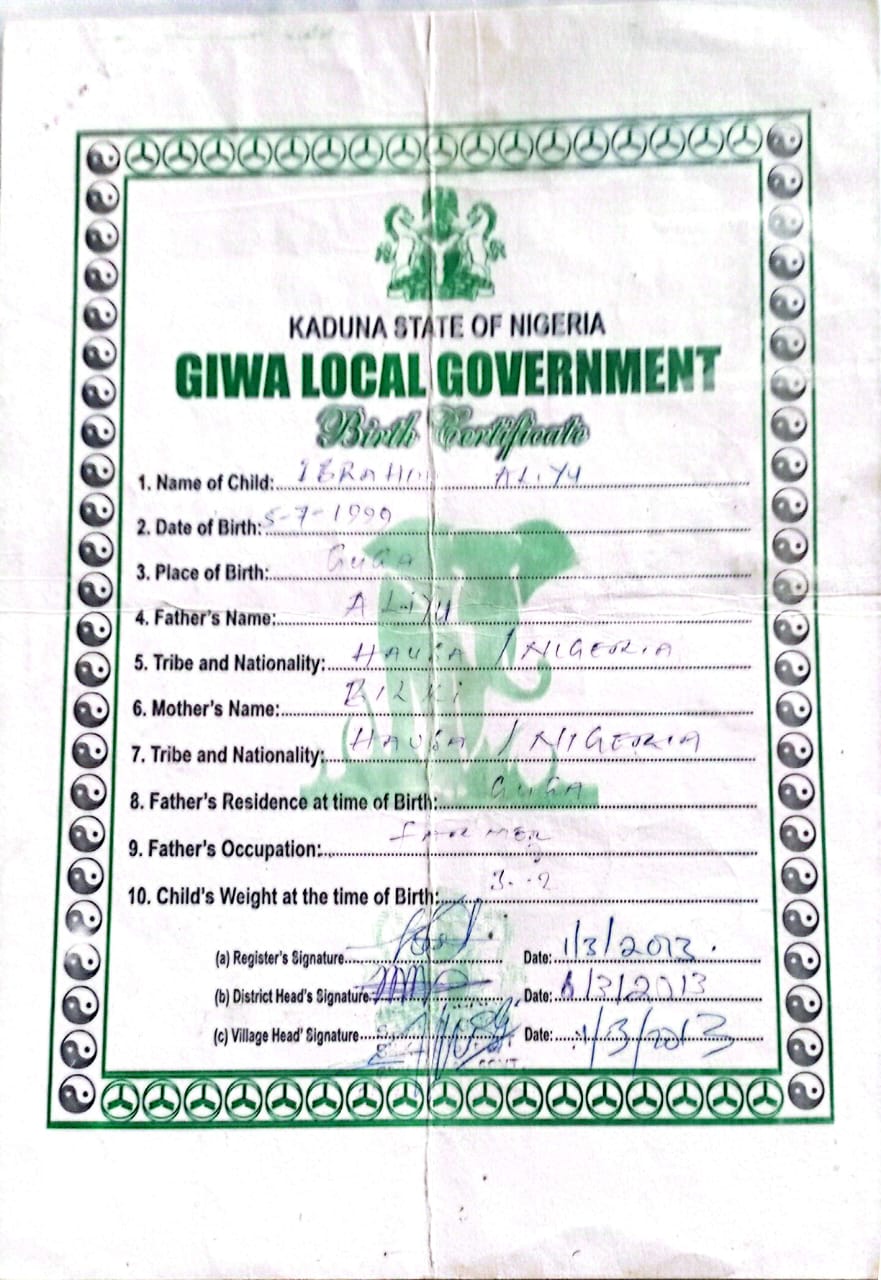 KADUNA STATE OF NIGERIA
GIWA LOCAL GOVERNMENT
Birth Certificate
1. Name of Child: IBRAHIM ALIYU
2. Date of Birth: 5-7-1999
3. Place of Birth: GUGA
4. Father's Name: ALIYU
5. Tribe and Nationality: HAUSA / NIGERIA
6. Mother's Name: BILKI
7. Tribe and Nationality: HAUSA / NIGERIA
8. Father's Residence at time of Birth: GUGA
9. Father's Occupation: FARMER
10. Child's Weight at the time of Birth:
(a) Register's Signature Date: 1/3/2013
(b) District Head's Signature Date: 1/3/2013
(c) Village Head' Signature Date: 1/3/2013